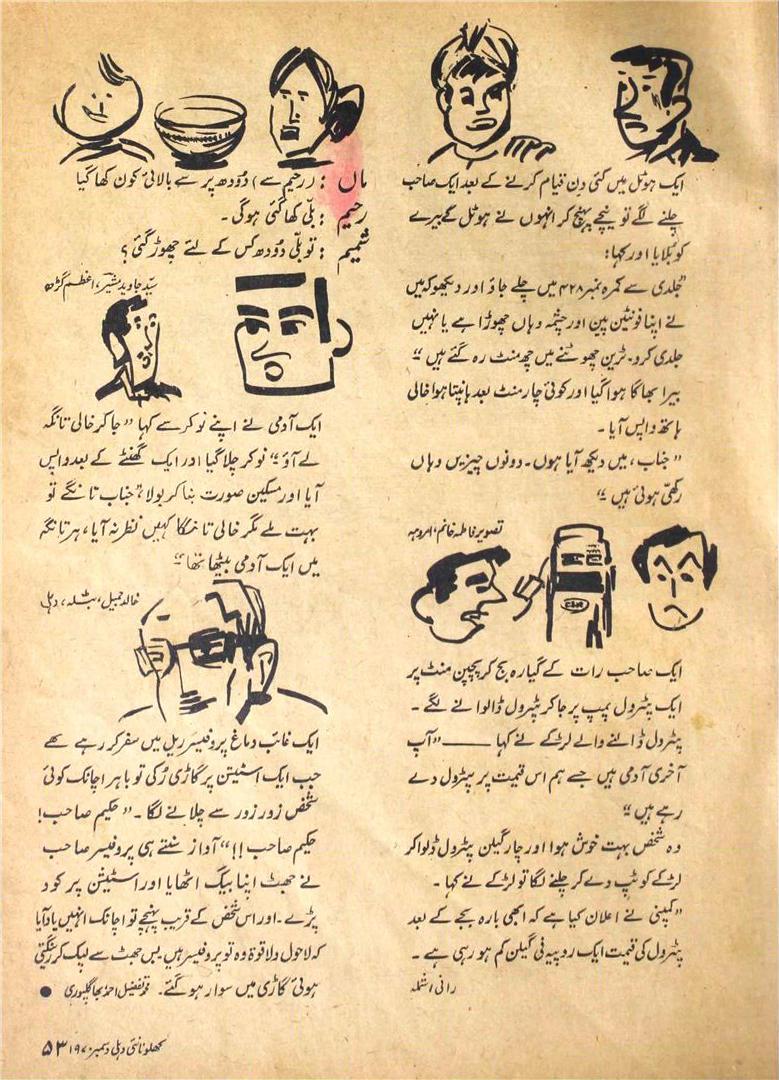 ایک ہوٹل میں کئی دن قیام کرنے کے بعد ایک صاحب
چلنے لگے تو نیچے پہنچ کر انہوں نے ہوٹل کے بیرے
کو بلایا اور کہا:
"جلدی سے کمرہ نمبر ۴۲۸ میں چلے جاؤ اور دیکھو کہ میں
نے اپنا فونٹین پین اور چشمہ وہاں چھوڑا ہے یا نہیں
جلدی کرو۔ ٹرین چھوٹنے میں چھ منٹ رہ گئے ہیں"
بیرا بھاگا ہوا گیا اور کوئی چار منٹ بعد ہانپتا ہوا خالی
ہاتھ واپس آیا۔
"جناب، میں دیکھ آیا ہوں۔ دونوں چیزیں وہاں
رکھی ہوئی ہیں"
تصویر فاطمہ خانم، امروہہ
ایک صاحب رات کے گیارہ بج کر پچپن منٹ پر
ایک پٹرول پمپ پر جا کر پٹرول ڈالوانے لگے۔
پٹرول ڈالنے والے لڑکے نے کہا ــــــ "آپ
آخری آدمی ہیں جسے ہم اس قیمت پر پٹرول دے
رہے ہیں"
وہ شخص بہت خوش ہوا اور چار گیلن پیٹرول ڈلوا کر
لڑکے کو ٹپ دے کر چلنے لگا تو لڑکے نے کہا۔
"کمپنی نے اعلان کیا ہے کہ ابھی بارہ بجے کے بعد
پٹرول کی قیمت ایک روپیہ فی گیلن کم ہو رہی ہے۔
رانی، شملہ
ماں : (رحیم سے) دودھ پر سے بالائی کون کھا گیا
رحیم : بلّی کھا گئی ہوگی۔
شمیم : تو بلّی دودھ کس کے لئے چھوڑ گئی؟
سیّد جاوید، اعظم گڑھ
ایک آدمی نے اپنے نوکر سے کہا "جا کر خالی تانگہ
لے آؤ" نوکر چلا گیا اور ایک گھنٹے کے بعد واپس
آیا اور مسکین صورت بنا کر بولا "جناب تانگے تو
بہت ملے مگر خالی تانگا کہیں نظر نہ آیا، ہر تانگہ
میں ایک آدمی بیٹھا تھا"
خالد جمیل، دہلی
ایک غائب دماغ پروفیسر ریل میں سفر کر رہے تھے
جب ایک اسٹیشن پر گاڑی رُکی تو باہر اچانک کوئی
شخص زور زور سے چلانے لگا۔ "حکیم صاحب!
حکیم صاحب!!" آواز سنتے ہی پروفیسر صاحب
نے جھٹ اپنا بیگ اٹھایا اور اسٹیشن پر کود
پڑے۔ اور اس شخص کے قریب پہنچے تو اچانک انہیں یاد آیا
کہ لاحول ولا قوۃ وہ تو پروفیسر ہیں۔ بس جھٹ سے لپک کر رینگتی
ہوئی گاڑی میں سوار ہو گئے۔ محمد تفضیل احمد بھاگلپوری ●
کھلونا نئی دہلی دسمبر ۱۹۷۰ ۵۳